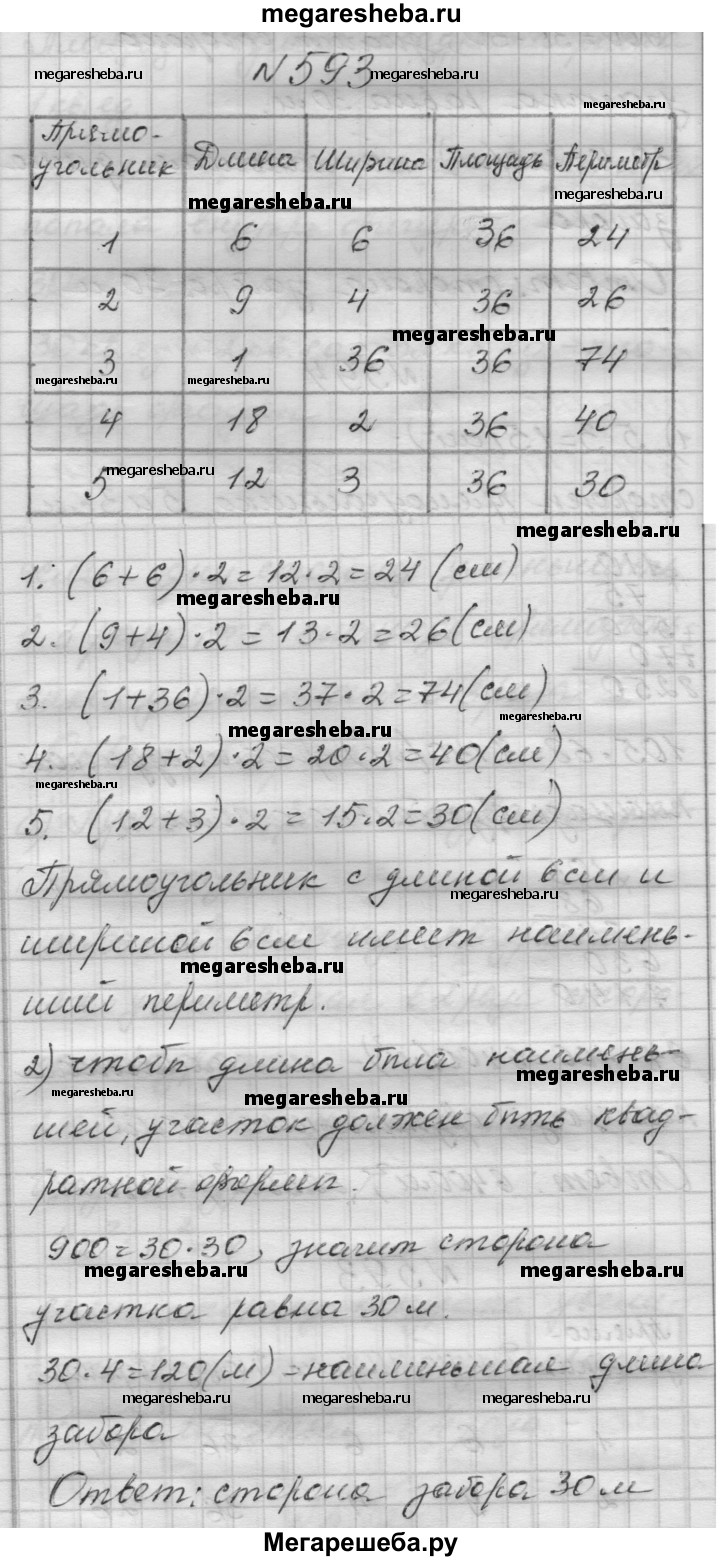 megaresheba.ru
№593
megaresheba.ru megaresheba.ru
megaresheba.ru
Прямо-
угольник Длина Ширина Площадь Периметр
megaresheba.ru megaresheba.ru
1 6 6 36 24
2 9 4 36 26
megaresheba.ru
3 1 36 36 74
megaresheba.ru megaresheba.ru
4 18 2 36 40
megaresheba.ru
5 12 3 36 30
megaresheba.ru
1. (6+6)·2=12·2=24(см)
megaresheba.ru
2. (9+4)·2=13·2=26(см)
3. (1+36)·2=37·2=74(см)
megaresheba.ru
megaresheba.ru
4. (18+2)·2=20·2=40(см)
megaresheba.ru
5. (12+3)·2=15·2=30(см)
Прямоугольник с длиной 6см и
megaresheba.ru
шириной 6см имеет наимень-
megaresheba.ru
ший периметр.
2) чтобы длина была наимень-
megaresheba.ru
megaresheba.ru megaresheba.ru
шей, участок должен быть квад-
ратной формы.
900=30·30, значит сторона
megaresheba.ru megaresheba.ru
участка равна 30м.
30·4=120(м)-наиминьшая длина
megaresheba.ru megaresheba.ru megaresheba.ru
забора
Ответ: сторона забора 30м
Мегарешеба.ру